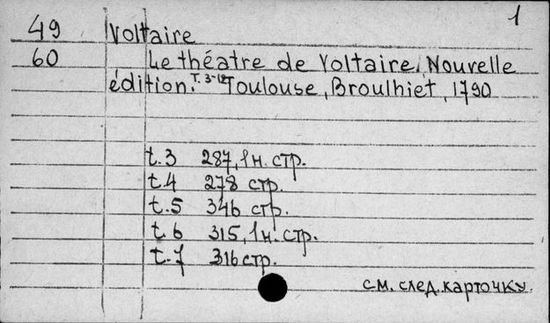 1
49 Voltaire
60 Le théatre de Voltaire. Nouvelle
édition. T. 3-12 Toulouse, Broulhiet, 1790
t.3 287, 1 н. стр.
t.4 278 стр.
t.5 346 стр.
t.6 315, 1 н. стр.
t.7 316 стр.
см. след. карточку.